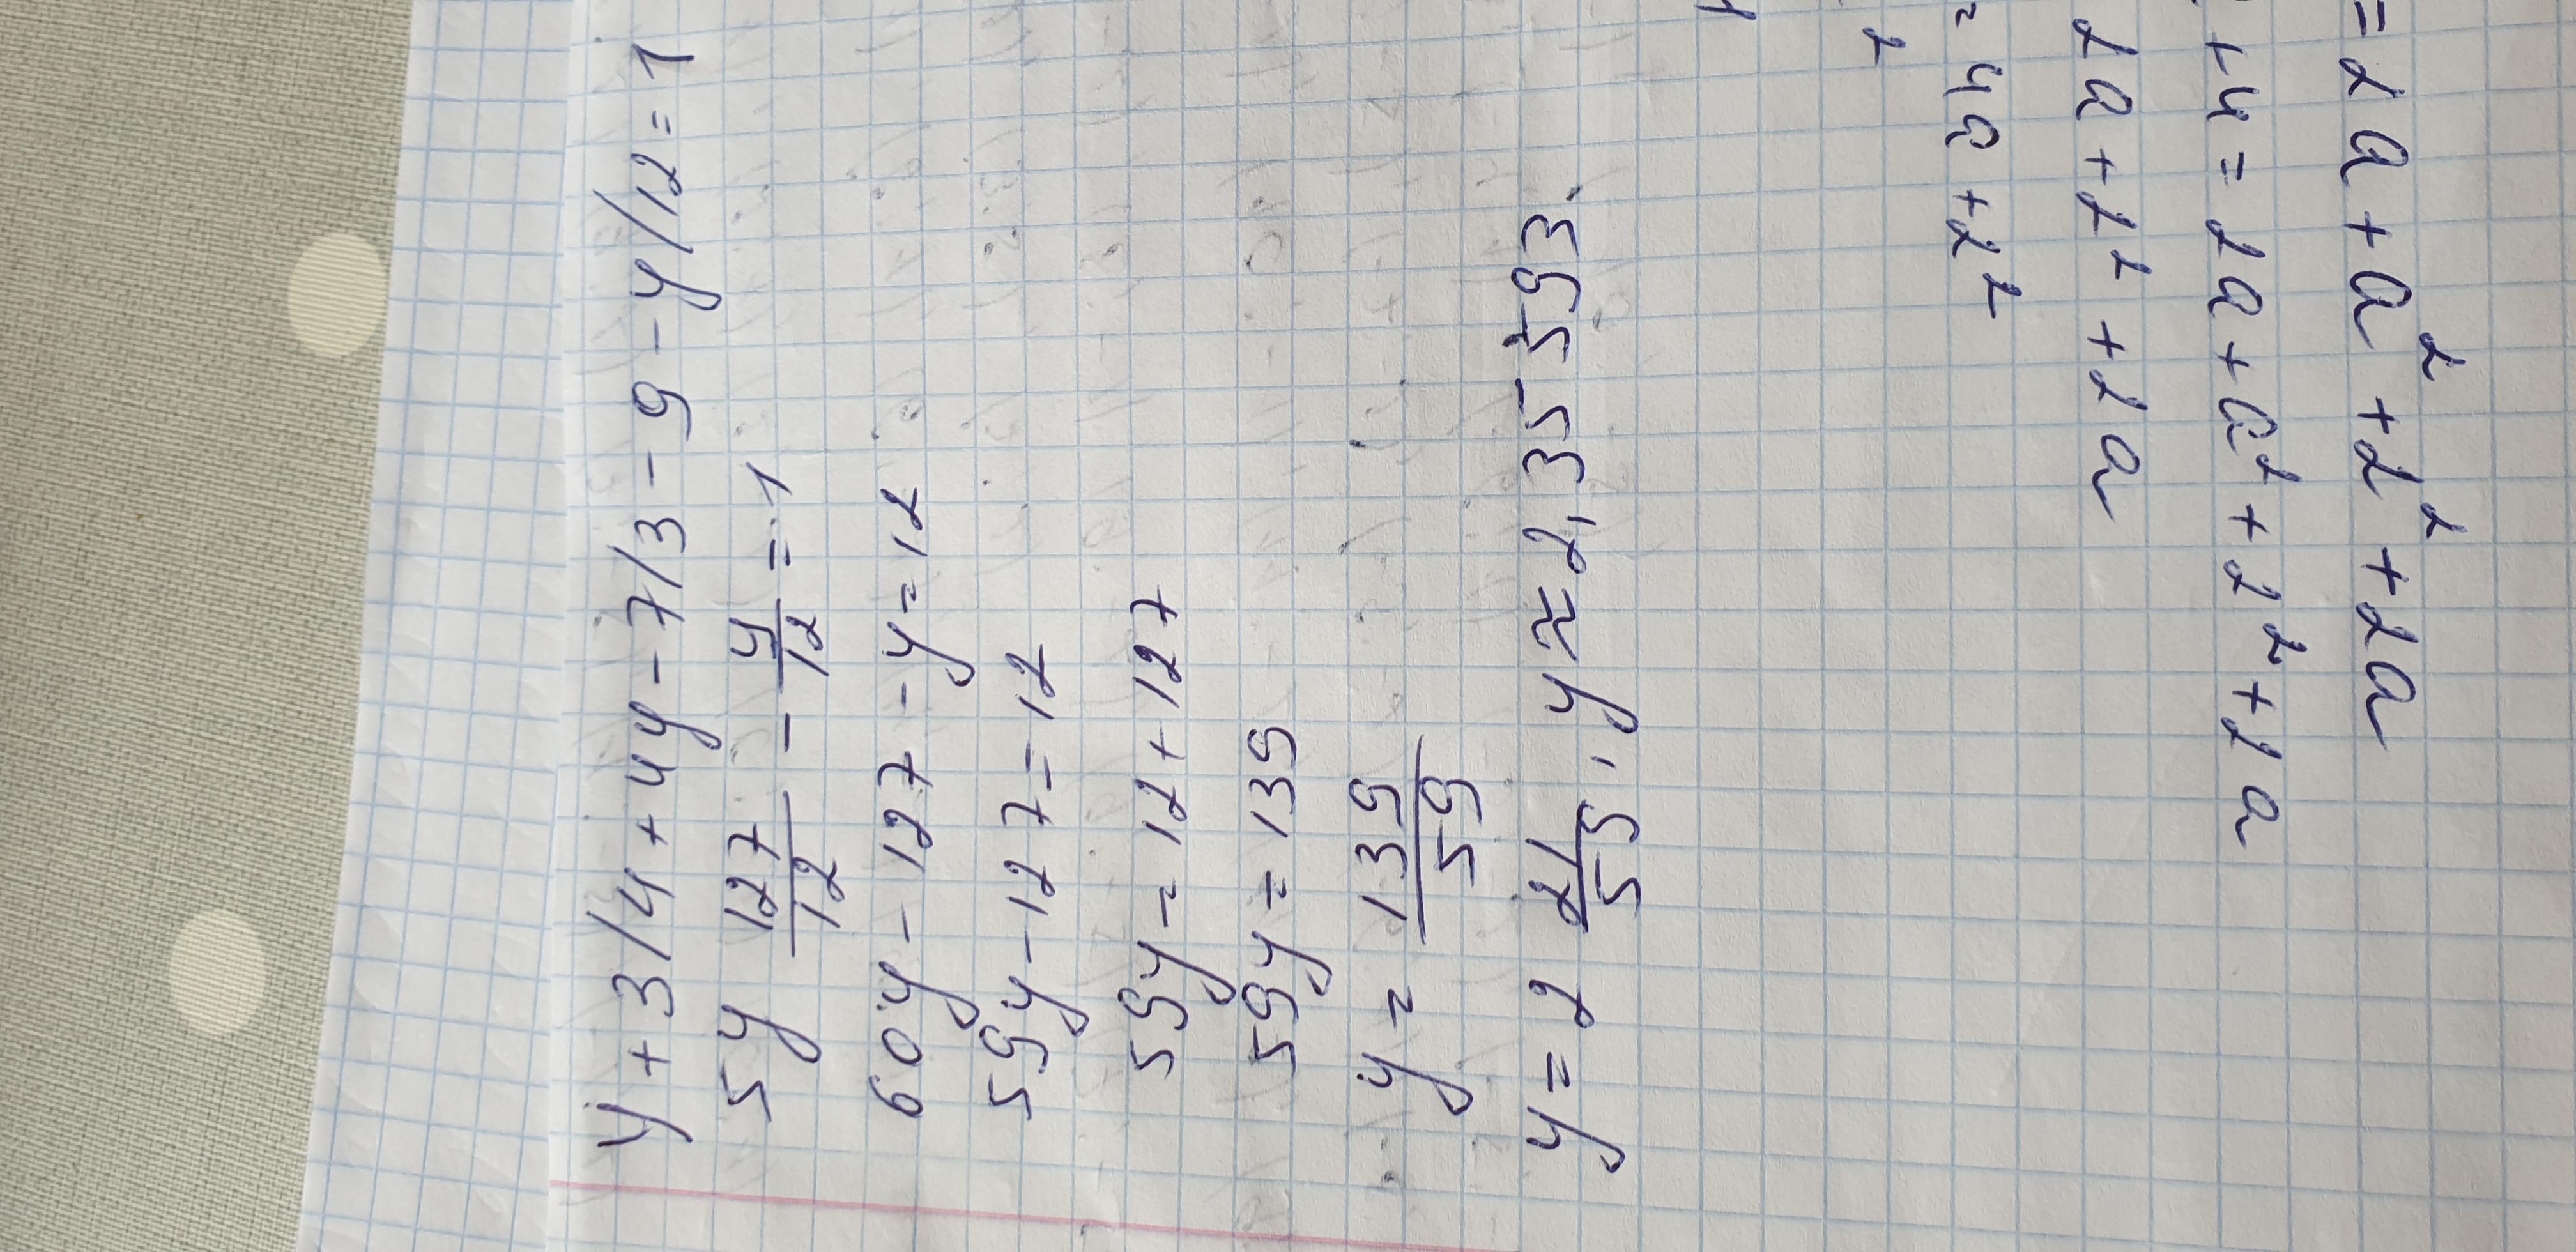 y + 3/4 + 4y - 7/3 - 9 - y/12 = 1
5y 127/12 - y/12 = 1
60y - 127 - y = 12
59y - 127 = 12
59y = 12 + 127
59y = 139
y = 139/59
y = 2 21/59, y ≈ 2,355593.
= 4a + 2²
2a + 2² + 2a
+ 4 = 2a + a² + 2² + 2a
= 2a + a² + 2² + 2a